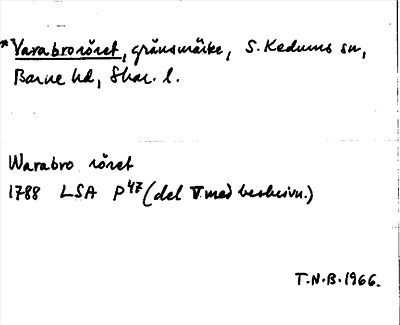 *Varabroröret, gränsmärke, S. Kedums sn,
Barne hd, Skar. l.
Warabro röret
1788 LSA P 47 (del V med beskrivn.)
T.N.B. 1966.